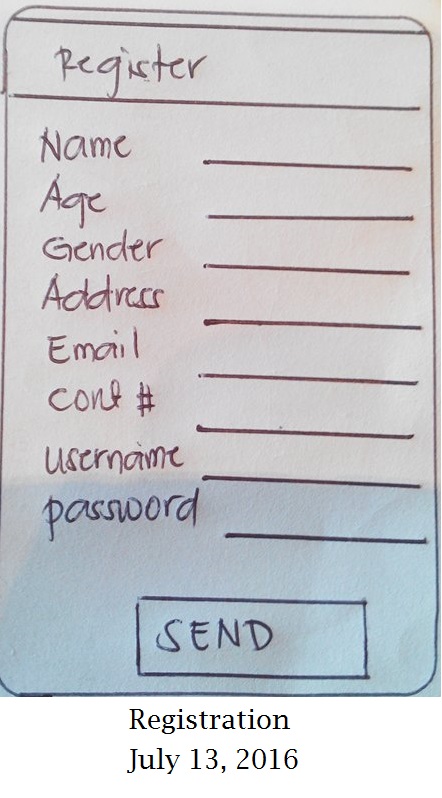 Register
Name
Age
Gender
Address
Email
Cont #
username
password
SEND
Registration
July 13, 2016